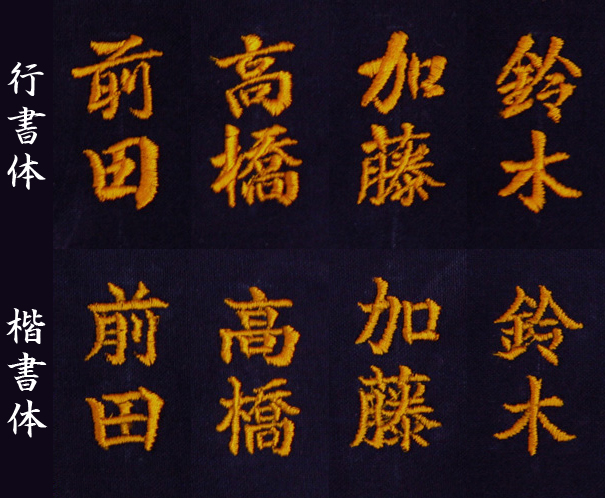 行書体
前田
高橋
加藤
鈴木
楷書体
前田
高橋
加藤
鈴木